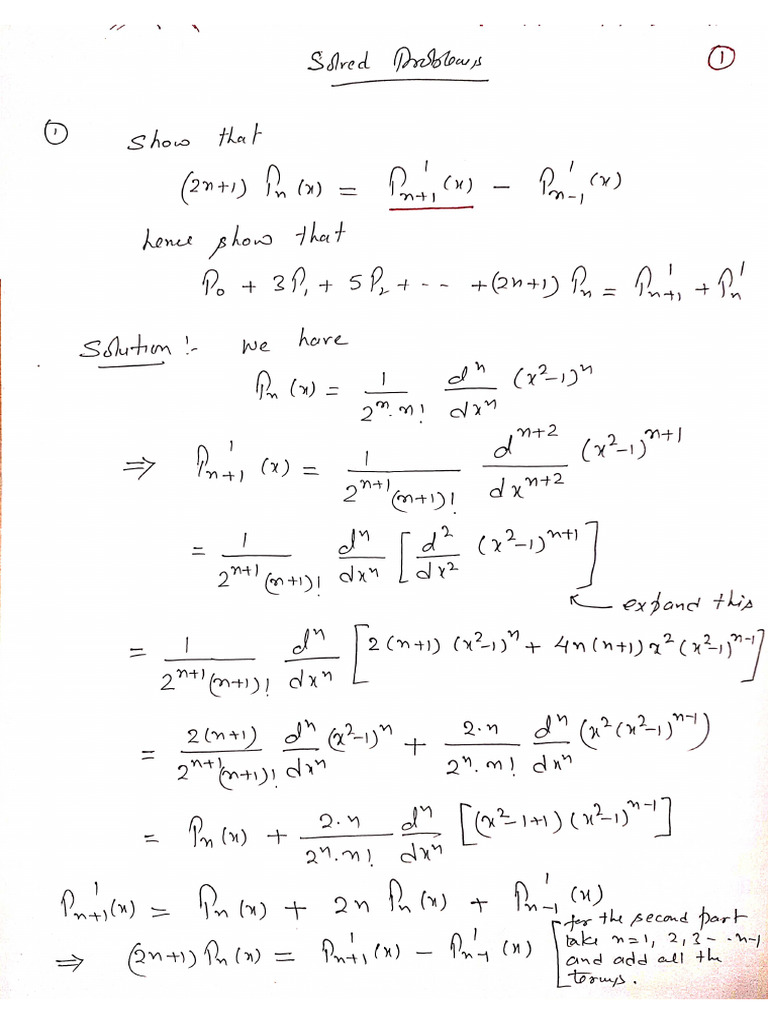 Solved Problems ①
① Show that
(2n+1) Pₙ(x) = P'ₙ₊₁(x) − P'ₙ₋₁(x)
hence show that
P₀ + 3P₁ + 5P₂ + -- + (2n+1) Pₙ = P'ₙ₊₁ + P'ₙ
Solution :- we have
Pₙ(x) = 1/(2ⁿ·n!) dⁿ/dxⁿ (x²-1)ⁿ
⇒ P'ₙ₊₁(x) = 1/(2ⁿ⁺¹(n+1)!) dⁿ⁺²/dxⁿ⁺² (x²-1)ⁿ⁺¹
= 1/(2ⁿ⁺¹(n+1)!) dⁿ/dxⁿ [d²/dx² (x²-1)ⁿ⁺¹]
← expand this
= 1/(2ⁿ⁺¹(n+1)!) dⁿ/dxⁿ [2(n+1)(x²-1)ⁿ + 4n(n+1)x²(x²-1)ⁿ⁻¹]
= 2(n+1)/(2ⁿ⁺¹(n+1)!) dⁿ/dxⁿ (x²-1)ⁿ + 2·n/(2ⁿ·n!) dⁿ/dxⁿ (x²(x²-1)ⁿ⁻¹)
= Pₙ(x) + 2·n/(2ⁿ·n!) dⁿ/dxⁿ [(x²-1+1)(x²-1)ⁿ⁻¹]
P'ₙ₊₁(x) = Pₙ(x) + 2n Pₙ(x) + P'ₙ₋₁(x)
⇒ (2n+1) Pₙ(x) = P'ₙ₊₁(x) − P'ₙ₋₁(x)
[for the second part
take n=1, 2, 3 -- n-1
and add all the
terms.